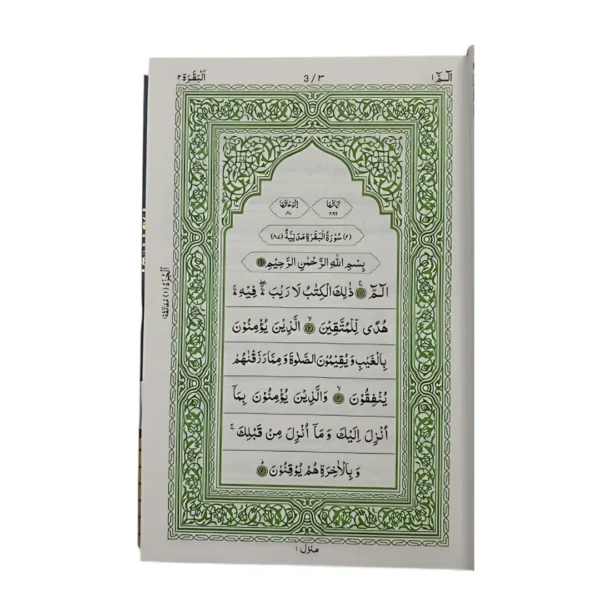 الٓمّٓ ١
3/٣
اَلْبَقَرَة ٢
اٰیَاتُهَا
٢٨٦
رُكُوْعَاتُهَا
٤٠
(٢) سُوْرَةُ الْبَقَرَةِ مَدَنِيَّةٌ (٨٧)
بِسْمِ اللهِ الرَّحْمٰنِ الرَّحِيْمِ
الٓمّٓ ۚ ﴿١﴾ ذٰلِكَ الْكِتٰبُ لَا رَيْبَ ۛ فِيْهِ ۛ
هُدًى لِّلْمُتَّقِيْنَ ۙ ﴿٢﴾ الَّذِيْنَ يُؤْمِنُوْنَ
بِالْغَيْبِ وَيُقِيْمُوْنَ الصَّلٰوةَ وَمِمَّا رَزَقْنٰهُمْ
يُنْفِقُوْنَ ۙ ﴿٣﴾ وَالَّذِيْنَ يُؤْمِنُوْنَ بِمَآ
اُنْزِلَ اِلَيْكَ وَمَآ اُنْزِلَ مِنْ قَبْلِكَ ۚ
وَبِالْاٰخِرَةِ هُمْ يُوْقِنُوْنَ ﴿٤﴾
منزل ١